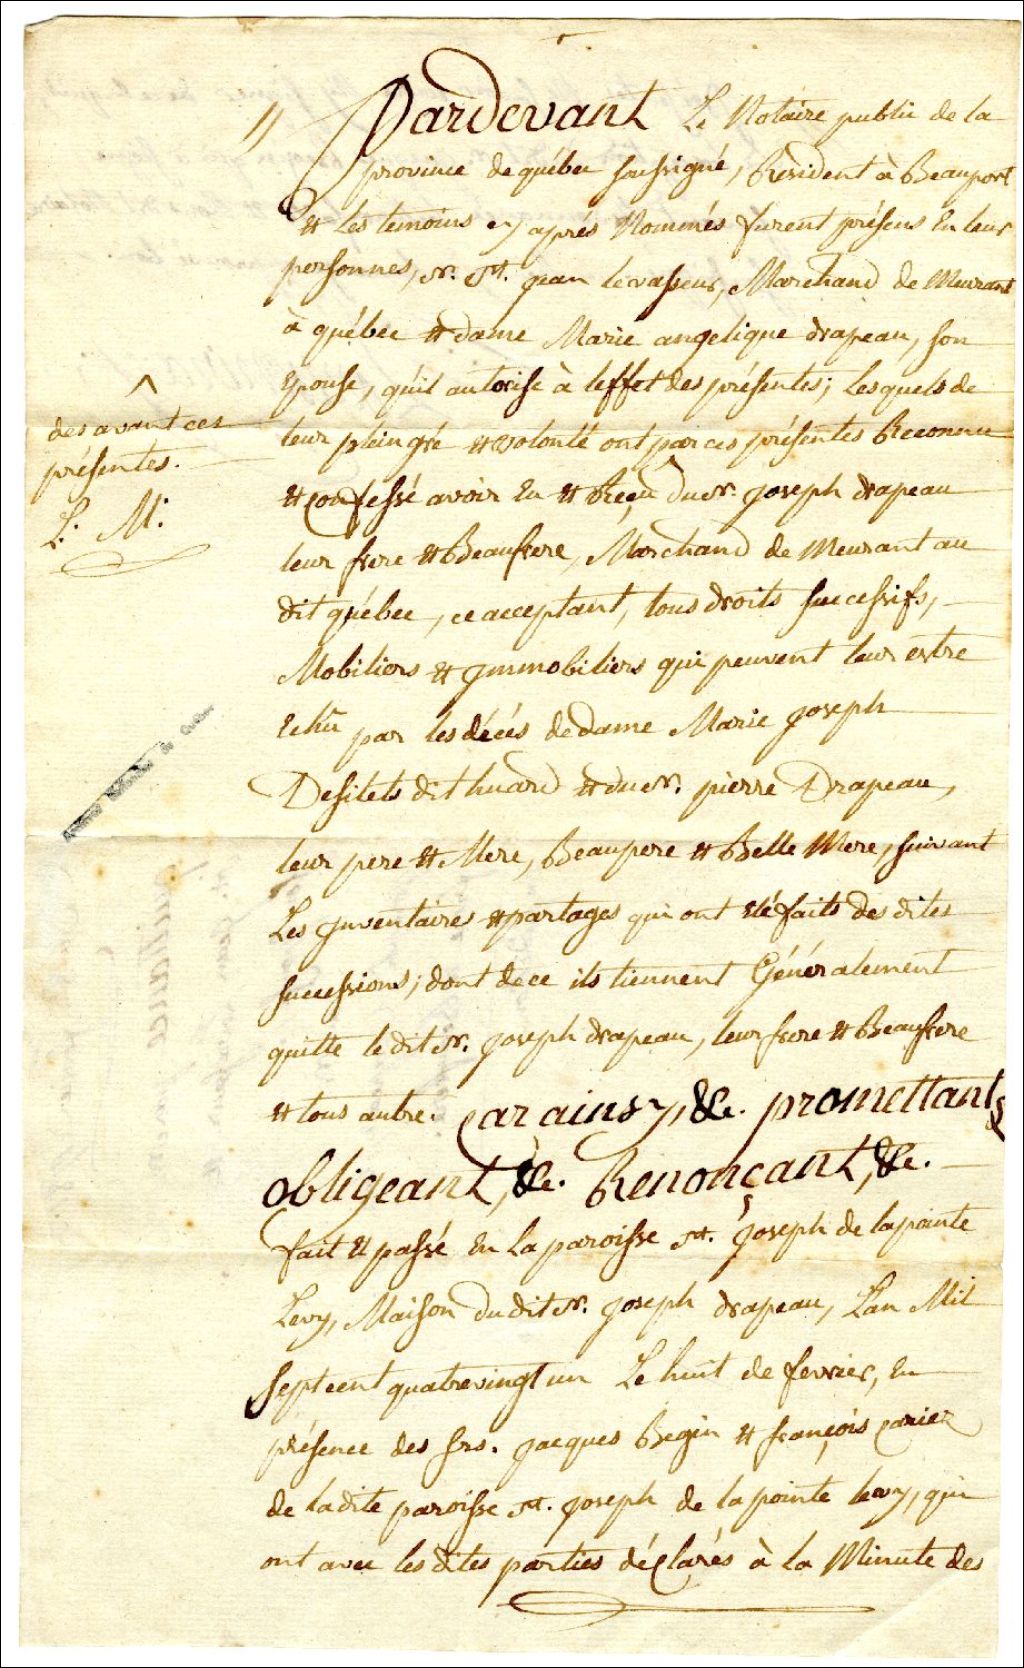 Pardevant Le Notaire public de la
province de québec soussigné, Résident à Beauport
et les temoins cy après Nommés furent présens En leurs
personnes, sr. st. jean levasseur, Marchand de Meurant
à québec et dame Marie angelique drapeau, son
Epouse, qu'il autorise à leffet des présentes; lesquels de
leur plein gré et volonté ont par ces présentes Reconnu
et confessé avoir Eu et Reçu du sr. joseph drapeau
^
des avant ces
présentes.
L. M.
leur frere et Beaufrere, Marchand de Meurant au
dit québec, ce acceptant, tous droits successifs,
Mobiliers et jmmobiliers qui peuvent leur estre
Echu par les décés de dame Marie joseph
Desilets dit huard et du sr. pierre Drapeau,
leur pere et Mere, Beaupere et Belle Mere, suivant
Les jnventaires et partages qui ont été faits des dites
successions; dont de ce ils tiennent Généralement
quitte le dit sr. joseph drapeau, leur frere et Beaufrere
et tous autre. Car ainsy, &c. promettant,
obligeant, &c. Renonçant, &c.
fait et passé En la paroisse st. joseph de la pointe
Levy, Maison du dit sr. joseph drapeau, L'an Mil
sept cent quatrevingt un Le huit de fevrier, En
présence des srs. jacques Begin et françois carier
de la dite paroisse st. joseph de la pointe levy, qui
ont avec les dites parties déclarés à la Minute des